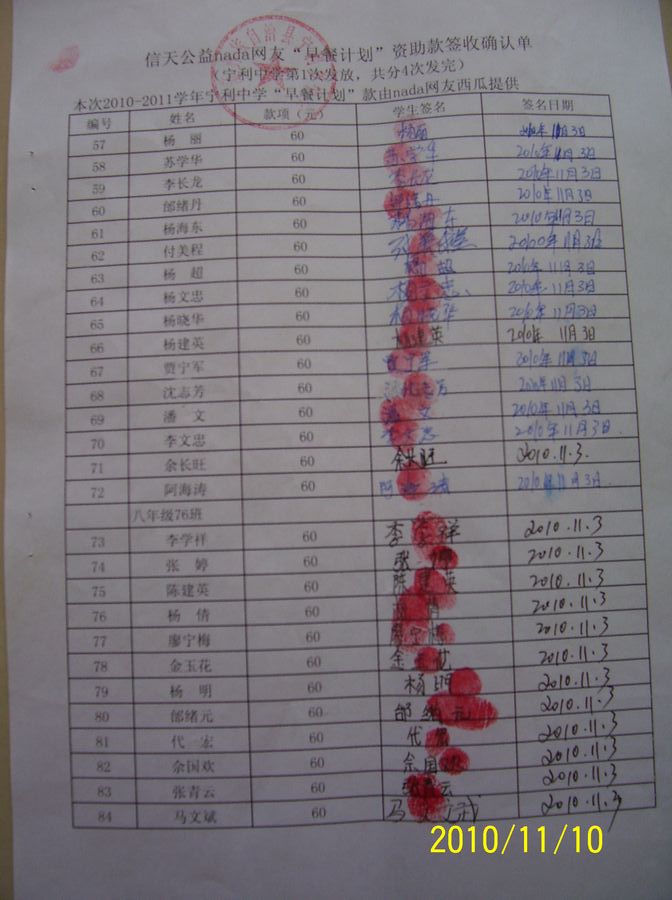 信天公益nada网友“早餐计划”资助款签收确认单
(宁利中学第1次发放，共分4次发完)
本次2010-2011学年宁利中学“早餐计划”款由nada网友西瓜提供
编号 姓名 款项（元） 学生签名 签名日期
57 杨 丽 60 杨丽 2010年11月3日
58 苏学华 60 苏学华 2010年11月3日
59 李长龙 60 李长龙 2010年11月3日
60 邰绪丹 60 邰绪丹 2010年11月3日
61 杨海东 60 杨海东 2010年11月3日
62 付美程 60 2010年11月3日
63 杨 超 60 杨超 2010年11月3日
64 杨文忠 60 杨文忠 2010年11月3日
65 杨晓华 60 杨晓华 2010年11月3日
66 杨建英 60 杨建英 2010年 11月3日
67 贾宁军 60 贾宁军 2010年11月3日
68 沈志芳 60 沈志芳 2010年11月3日
69 潘 文 60 潘文 2010年11月3日
70 李文忠 60 李文忠 2010年11月3日.
71 余长旺 60 余长旺 2010.11.3.
72 阿海涛 60 阿海涛 2010年11月3日.
八年级76班
73 李学祥 60 李学祥 2010.11.3
74 张 婷 60 张婷 2010.11.3
75 陈建英 60 陈建英 2010.11.3
76 杨 倩 60 2010.11.3
77 廖宁梅 60 廖宁梅 2010.11.3
78 金玉花 60 金玉花 2010.11.3
79 杨 明 60 杨明 2010.11.3
80 邰绪元 60 邰绪元 2010.11.3
81 代 宏 60 代宏 2010.11.3
82 余国欢 60 余国欢 2010.11.3
83 张青云 60 张青云 2010.11.3
84 马文斌 60 马文斌 2010.11.3
2010/11/10